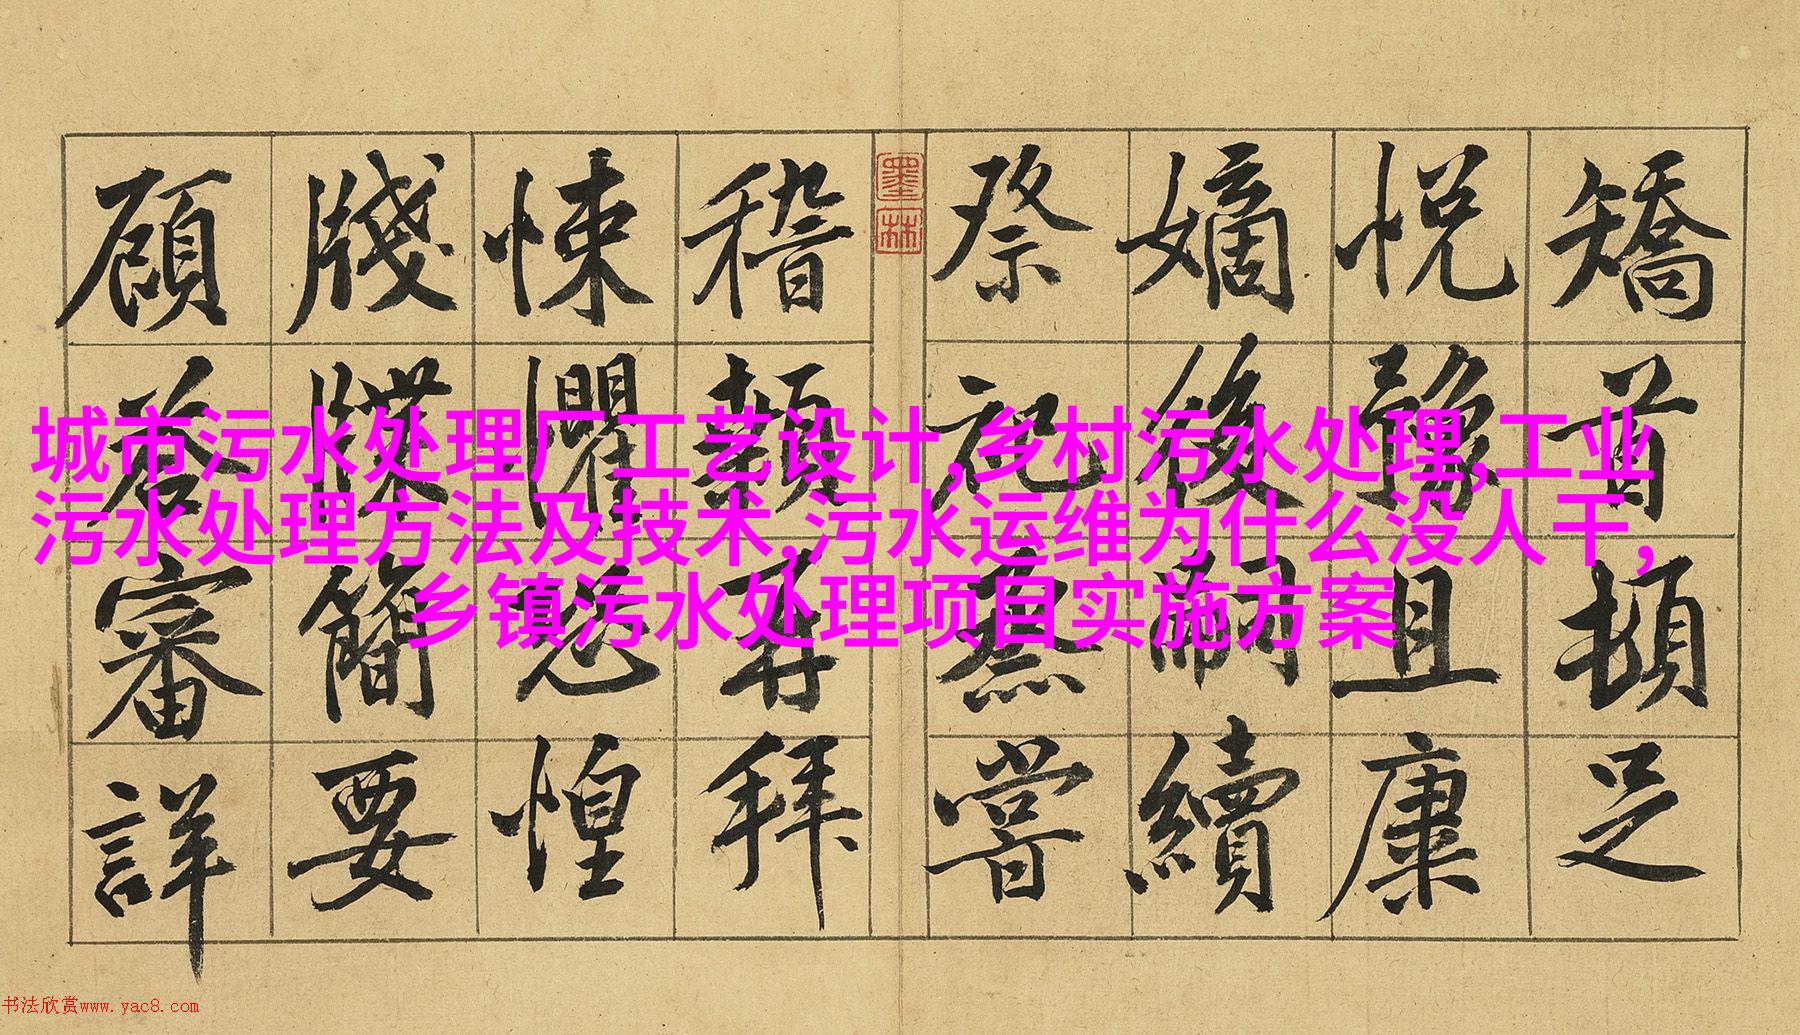 矯首頓足
悅豫且康
嫡後嗣續
祭祀蒸嘗
墨林
稽顙再拜
悚懼恐惶
牋牒簡要
顧答審詳
城市污水处理厂工艺设计,乡村污水处理,工业
污水处理方法及技术,污水运维为什么没人干,
乡镇污水处理项目实施方案
书法欣赏www.yac8.com